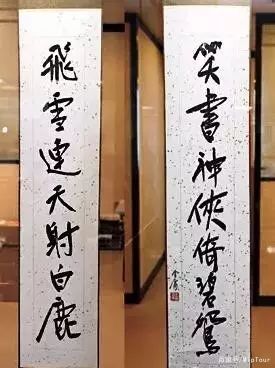 飛雪連天射白鹿
笑書神俠倚碧鴛
金庸
VipTour